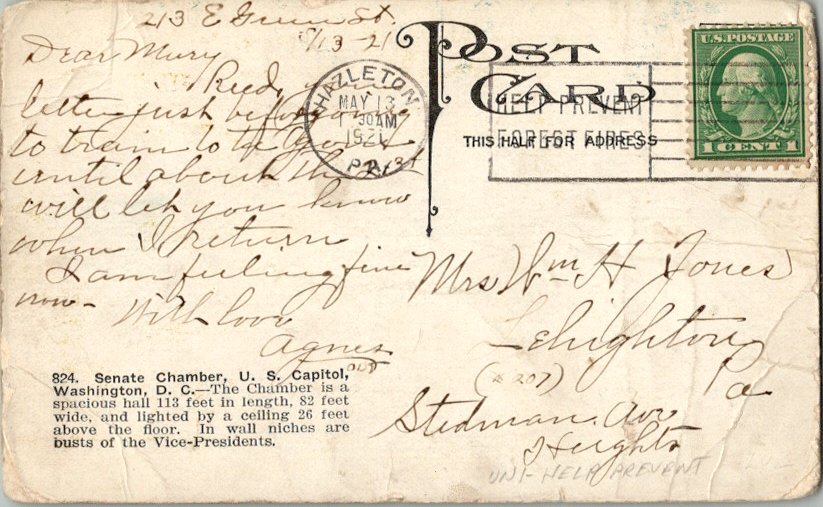 213 E Green St.
5/13-21
Dear Mary
Recd your
letter just before going
to train to be gone
until about the 21st
will let you know
when I return
I am feeling fine
now - With love
Agnes
824. Senate Chamber, U. S. Capitol,
Washington, D. C.—The Chamber is a
spacious hall 113 feet in length, 82 feet
wide, and lighted by a ceiling 26 feet
above the floor. In wall niches are
busts of the Vice-Presidents.
POST
CARD
THIS HALF FOR ADDRESS
HAZLETON
MAY 13
1 30AM
1921
PA.
HELP PREVENT
FOREST FIRES
U.S. POSTAGE
1 CENT 1
Mrs Wm H Jones
Lehighton
Pa
(# 207)
Stedman Ave
Heights
UNI-HELP PREVENT